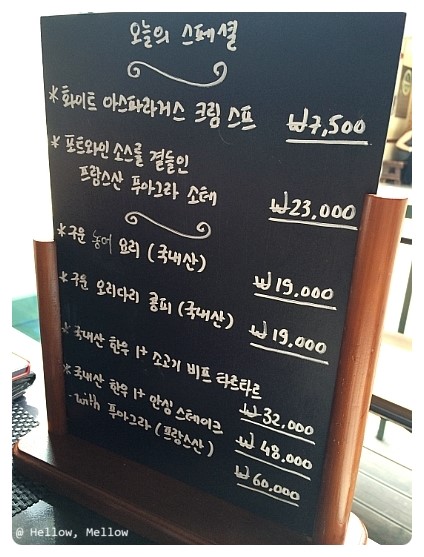 오늘의 스페셜
* 화이트 아스파라거스 크림 스프 ₩7,500
* 포트와인 소스를 곁들인
프랑스산 푸아그라 소테 ₩23,000
* 구운 농어 요리 (국내산) ₩19,000
* 구운 오리다리 콩피 (국내산) ₩19,000
* 국내산 한우 1+ 소고기 비프 타르타르 ₩32,000
* 국내산 한우 1+ 안심 스테이크 ₩48,000
- with 푸아그라 (프랑스산) ₩60,000
@ Hellow, Mellow